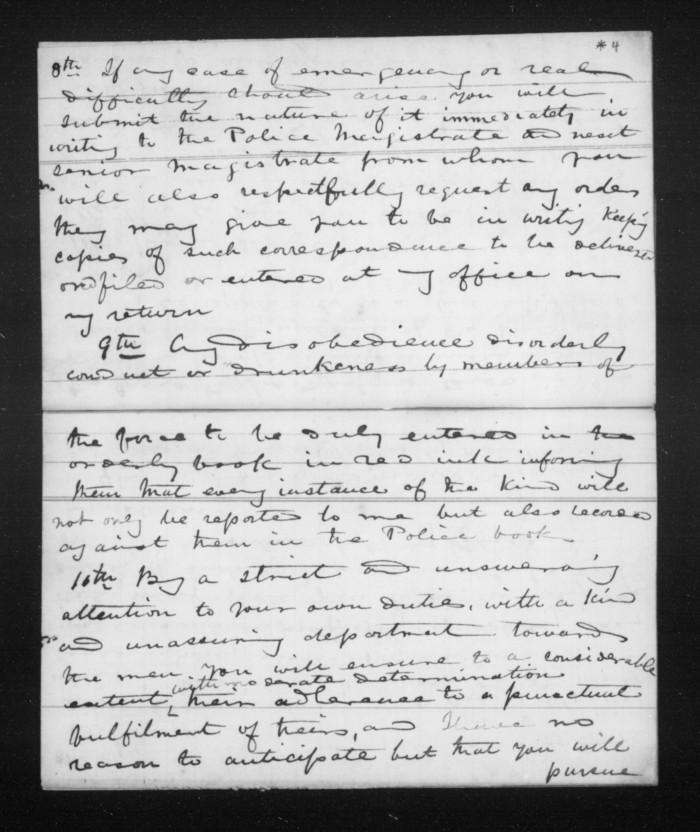 *4
8th If any case of emergency or real
difficulty should arise you will
submit the nature of it immediately in
writing to the Police Magistrate and next
senior magistrate from whom you
will also respectfully request any orders
they may give you to be in writing keeping
copies of such correspondence to be delivered
or filed or entered at my office on
my return
9th Any disobedience disorderly
conduct or drunkeness by members of
the force to be duly entered in the
orderly book in red ink informing
them that every instance of the kind will
not only be reported to me but also recorded
against them in the Police book
10th By a strict and unswerving
attention to your own duties, with a kind
and unassuming deportment towards
the men you will ensure to a considerable
with moderate determination
extent, their adherence to a punctual
fulfilment of theirs, and I have no
reason to anticipate but that you will
pursue